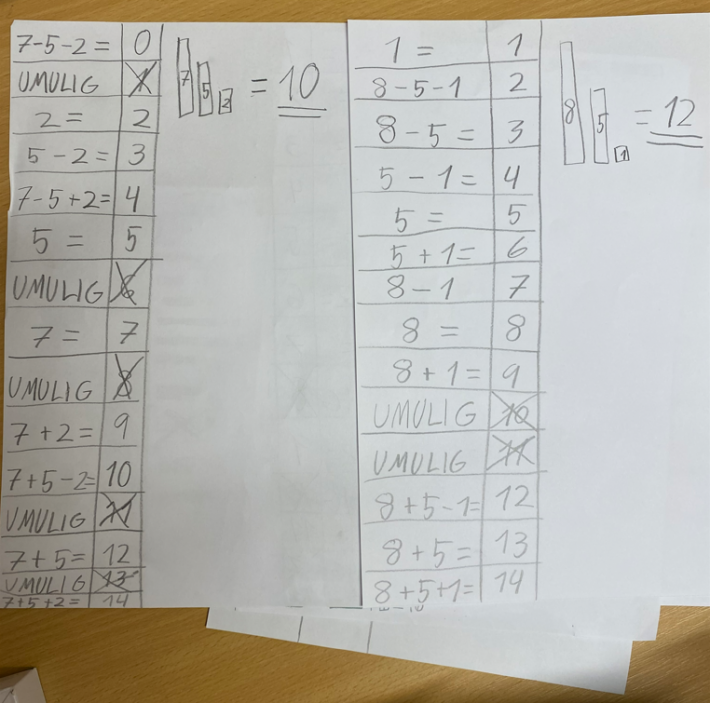 7-5-2= 0
UMULIG 1
2= 2
5-2= 3
7-5+2= 4
5= 5
UMULIG 6
7= 7
UMULIG 8
7+2= 9
7+5-2= 10
UMULIG 11
7+5= 12
UMULIG 13
7+5+2= 14
7 5 2 = 10
1= 1
8-5-1 2
8-5= 3
5-1= 4
5= 5
5+1= 6
8-1 7
8= 8
8+1= 9
UMULIG 10
UMULIG 11
8+5-1= 12
8+5= 13
8+5+1= 14
8 5 1 = 12